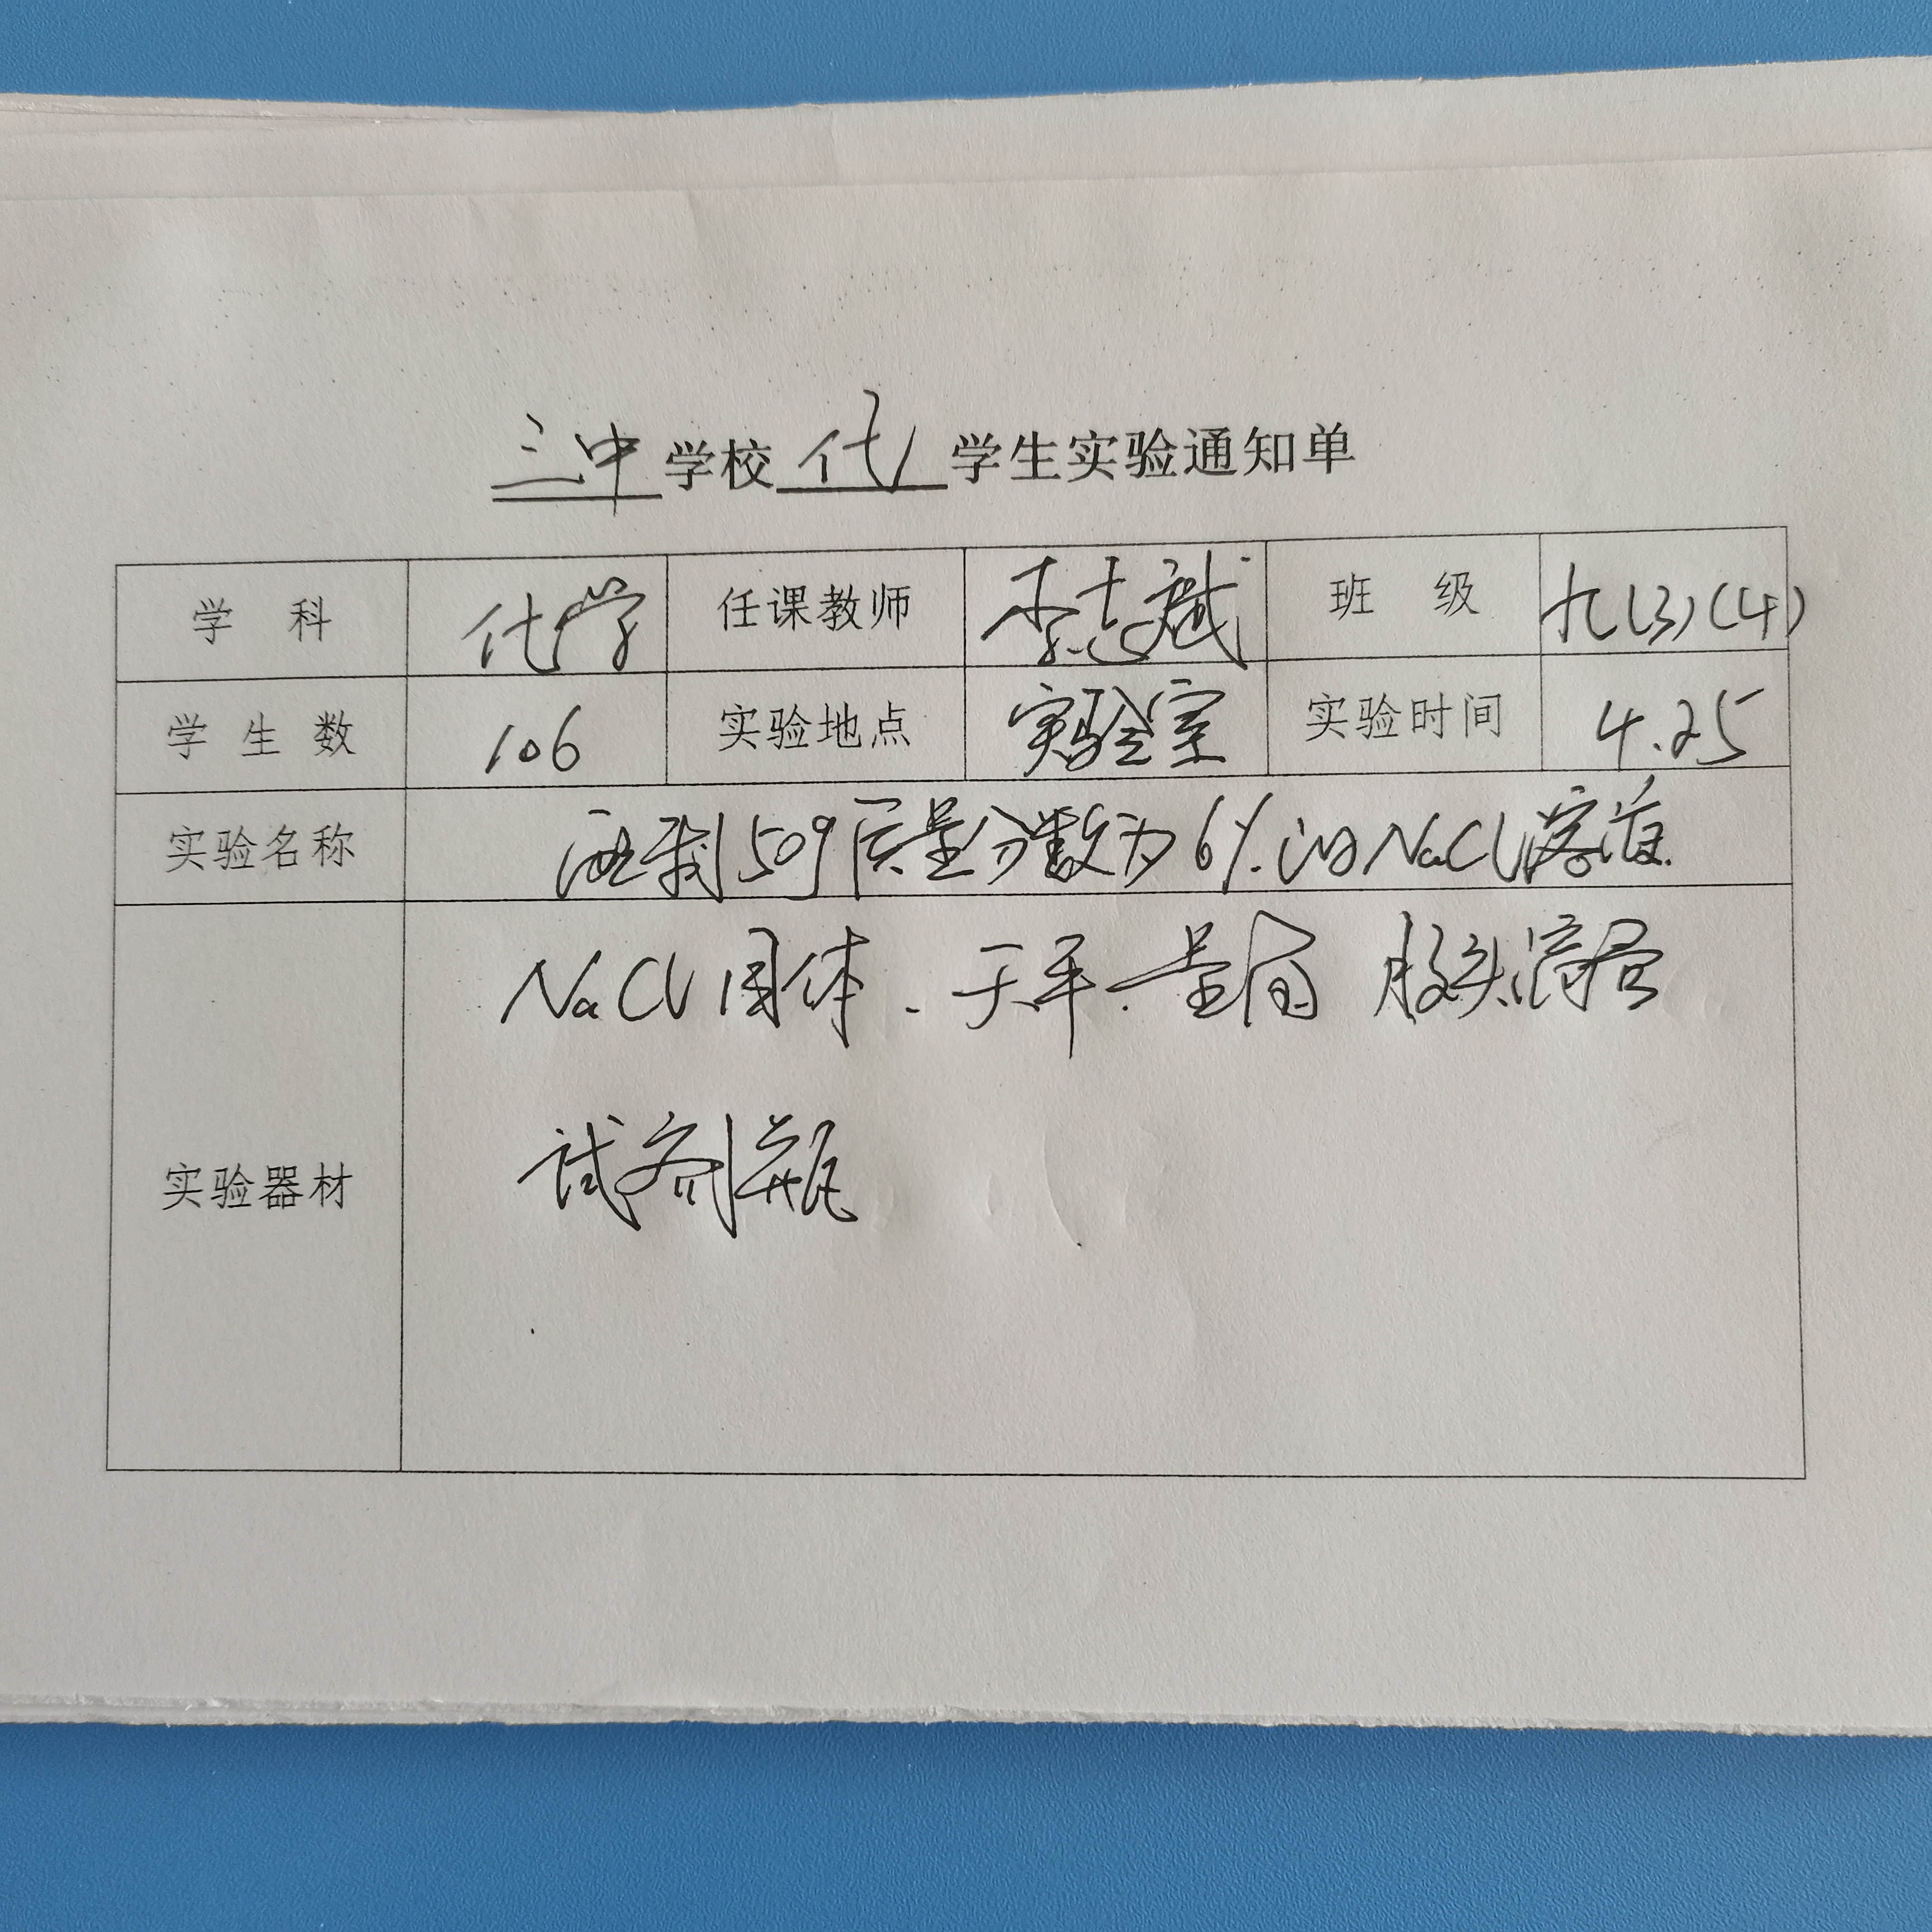 三中学校 化 学生实验通知单
学 科 化学 任课教师 李志斌 班 级 九(3)(4)
学生数 106 实验地点 实验室 实验时间 4.25
实验名称 配制50g质量分数为6%的NaCl溶液.
NaCl固体、天平、量筒 胶头滴管
试剂瓶
实验器材